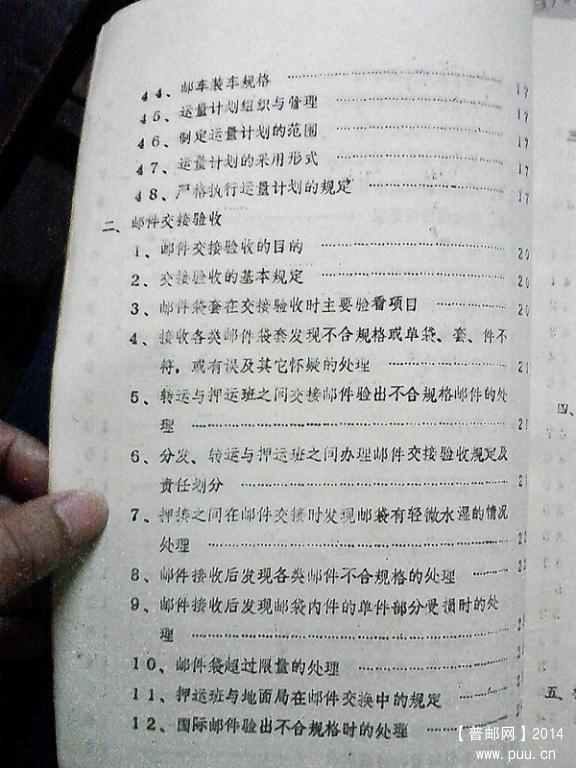 44、邮车装车规格 17
45、运量计划组织与管理 17
46、制定运量计划的范围 17
47、运量计划的采用形式 17
48、严格执行运量计划的规定 17
二、邮件交接验收
1、邮件交接验收的目的 20
2、交接验收的基本规定 20
3、邮件袋套在交接验收时主要验看项目 20
4、接收各类邮件袋套发现不合规格或单袋、套、件不
符，或有误及其它怀疑的处理 21
5、转运与押运班之间交接邮件验出不合规格邮件的处
理 21
6、分发、转运与押运班之间办理邮件交接验收规定及
责任划分 21
7、押接之间在邮件交接时发现邮袋有轻微水湿的情况
处理 22
8、邮件接收后发现各类邮件不合规格的处理 22
9、邮件接收后发现邮袋内件的单件部分受损时的处
理
10、邮件袋超过限量的处理
11、押运班与地面局在邮件交换中的规定
12、国际邮件验出不合规格时的处理
四、
五、
【普邮网】2014
www.puu.cn